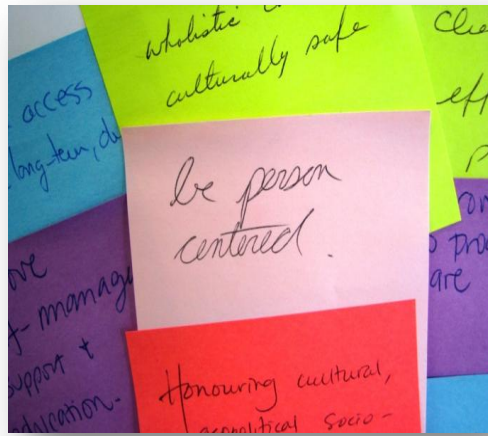 wholistic
culturally safe
access
long-term,
be person
centered.
-manage
support +
education-
eff
care
Honouring cultural,
geopolitical socio-